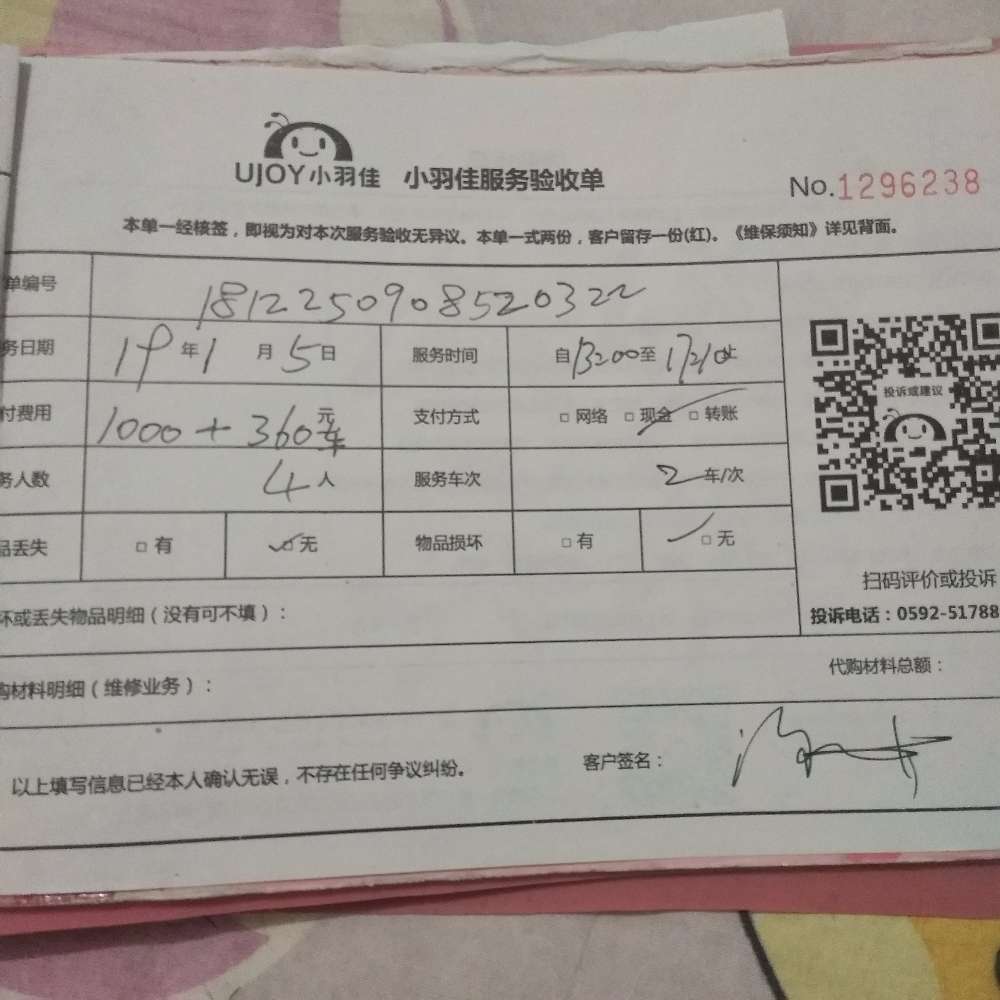 UJOY小羽佳 小羽佳服务验收单
No.1296238
本单一经核签，即视为对本次服务验收无异议。本单一式两份，客户留存一份(红)。《维保须知》详见背面。
单编号 1812250908520322
务日期 19年1月5日 服务时间 自13:00至17:21止
付费用 1000+360元 支付方式 □网络 □现金 □转账
务人数 4人 服务车次 2车/次
品丢失 □有 □无 物品损坏 □有 □无
投诉或建议
扫码评价或投诉
投诉电话：0592-51788
坏或丢失物品明细（没有可不填）：
购材料明细（维修业务）： 代购材料总额：
以上填写信息已经本人确认无误，不存在任何争议纠纷。 客户签名：